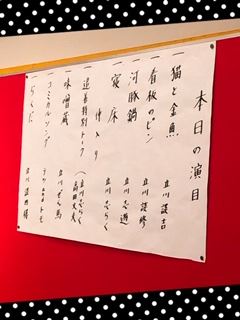 本日の演目
一 猫と金魚 立川談吉
一 看板のピン 立川談修
一 河豚鍋 立川志遊
一 寝床 立川志らく
仲入り
一 追善特別トーク (立川志らく 高田文夫
一 味噌蔵 立川ぜん馬
一 コミカルソング テツandトモ
一 らくだ 立川談四楼